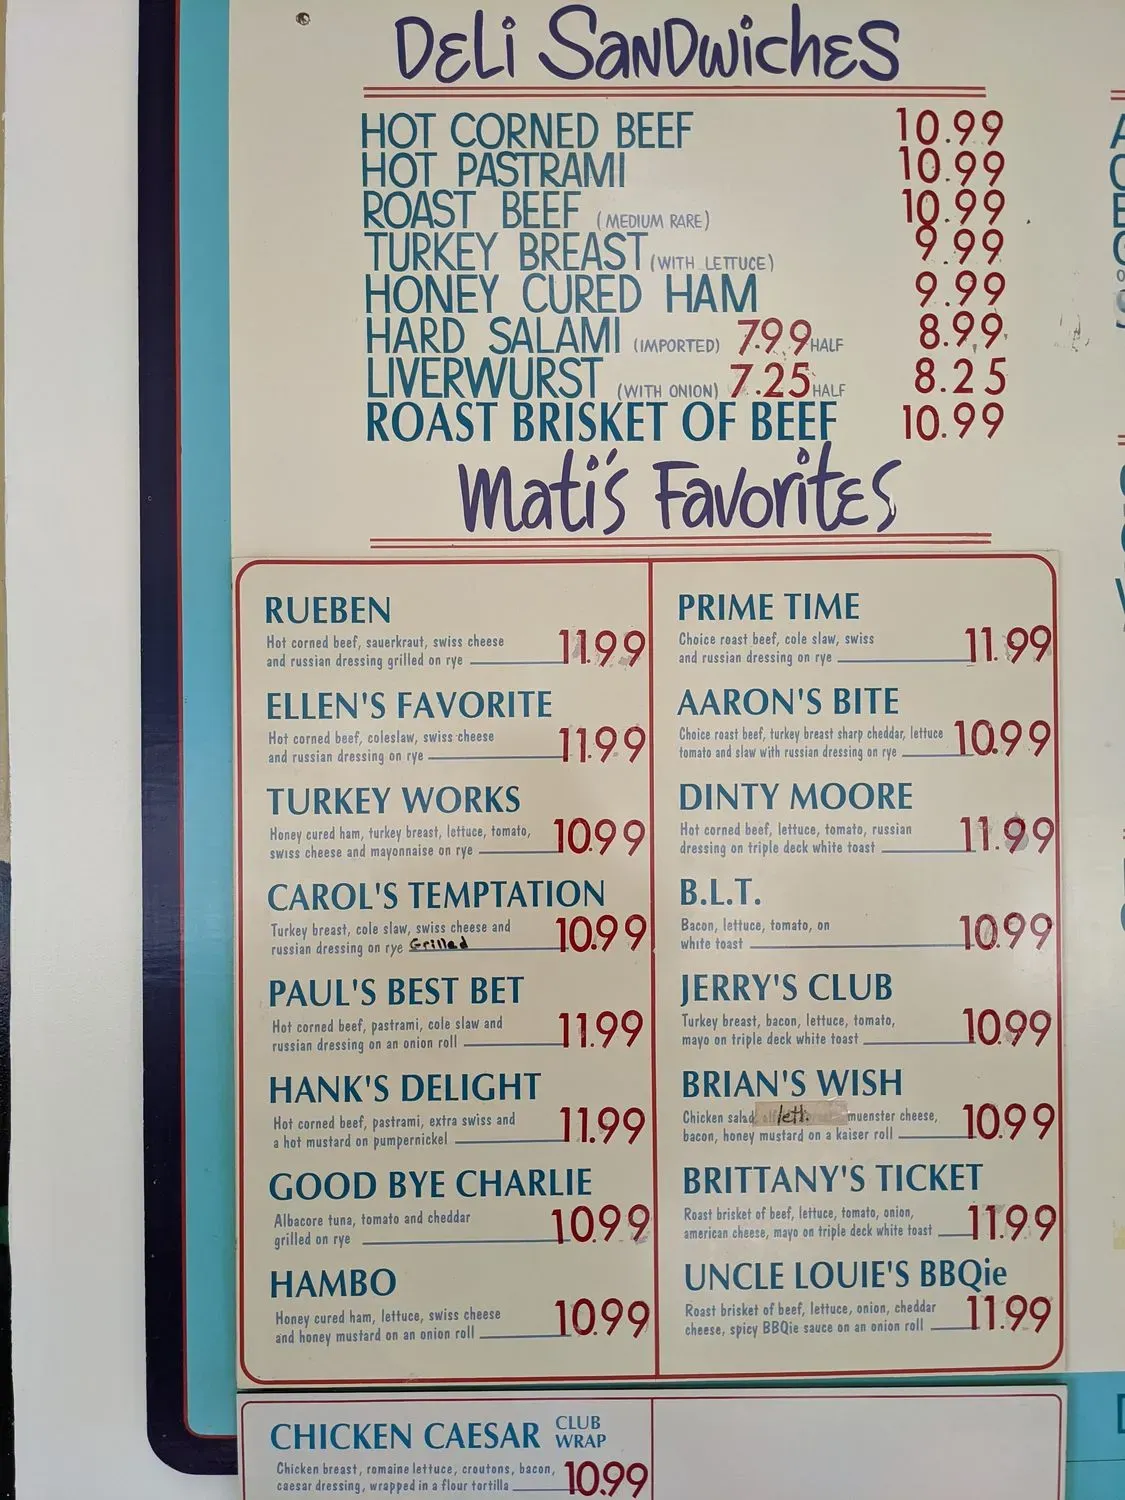 Deli Sandwiches
HOT CORNED BEEF 10.99
HOT PASTRAMI 10.99
ROAST BEEF (MEDIUM RARE) 10.99
TURKEY BREAST (WITH LETTUCE) 9.99
HONEY CURED HAM 9.99
HARD SALAMI (IMPORTED) 7.99 HALF 8.99
LIVERWURST (WITH ONION) 7.25 HALF 8.25
ROAST BRISKET OF BEEF 10.99
Mati's Favorites
RUEBEN
Hot corned beef, sauerkraut, swiss cheese
and russian dressing grilled on rye 11.99
ELLEN'S FAVORITE
Hot corned beef, coleslaw, swiss cheese
and russian dressing on rye 11.99
TURKEY WORKS
Honey cured ham, turkey breast, lettuce, tomato,
swiss cheese and mayonnaise on rye 10.99
CAROL'S TEMPTATION
Turkey breast, cole slaw, swiss cheese and
russian dressing on rye Grilled 10.99
PAUL'S BEST BET
Hot corned beef, pastrami, cole slaw and
russian dressing on an onion roll 11.99
HANK'S DELIGHT
Hot corned beef, pastrami, extra swiss and
a hot mustard on pumpernickel 11.99
GOOD BYE CHARLIE
Albacore tuna, tomato and cheddar
grilled on rye 10.99
HAMBO
Honey cured ham, lettuce, swiss cheese
and honey mustard on an onion roll 10.99
PRIME TIME
Choice roast beef, cole slaw, swiss
and russian dressing on rye 11.99
AARON'S BITE
Choice roast beef, turkey breast sharp cheddar, lettuce
tomato and slaw with russian dressing on rye 10.99
DINTY MOORE
Hot corned beef, lettuce, tomato, russian
dressing on triple deck white toast 11.99
B.L.T.
Bacon, lettuce, tomato, on
white toast 10.99
JERRY'S CLUB
Turkey breast, bacon, lettuce, tomato,
mayo on triple deck white toast 10.99
BRIAN'S WISH
Chicken salad lett. muenster cheese,
bacon, honey mustard on a kaiser roll 10.99
BRITTANY'S TICKET
Roast brisket of beef, lettuce, tomato, onion,
american cheese, mayo on triple deck white toast 11.99
UNCLE LOUIE'S BBQie
Roast brisket of beef, lettuce, onion, cheddar
cheese, spicy BBQie sauce on an onion roll 11.99
CHICKEN CAESAR CLUB WRAP
Chicken breast, romaine lettuce, croutons, bacon,
caesar dressing, wrapped in a flour tortilla 10.99